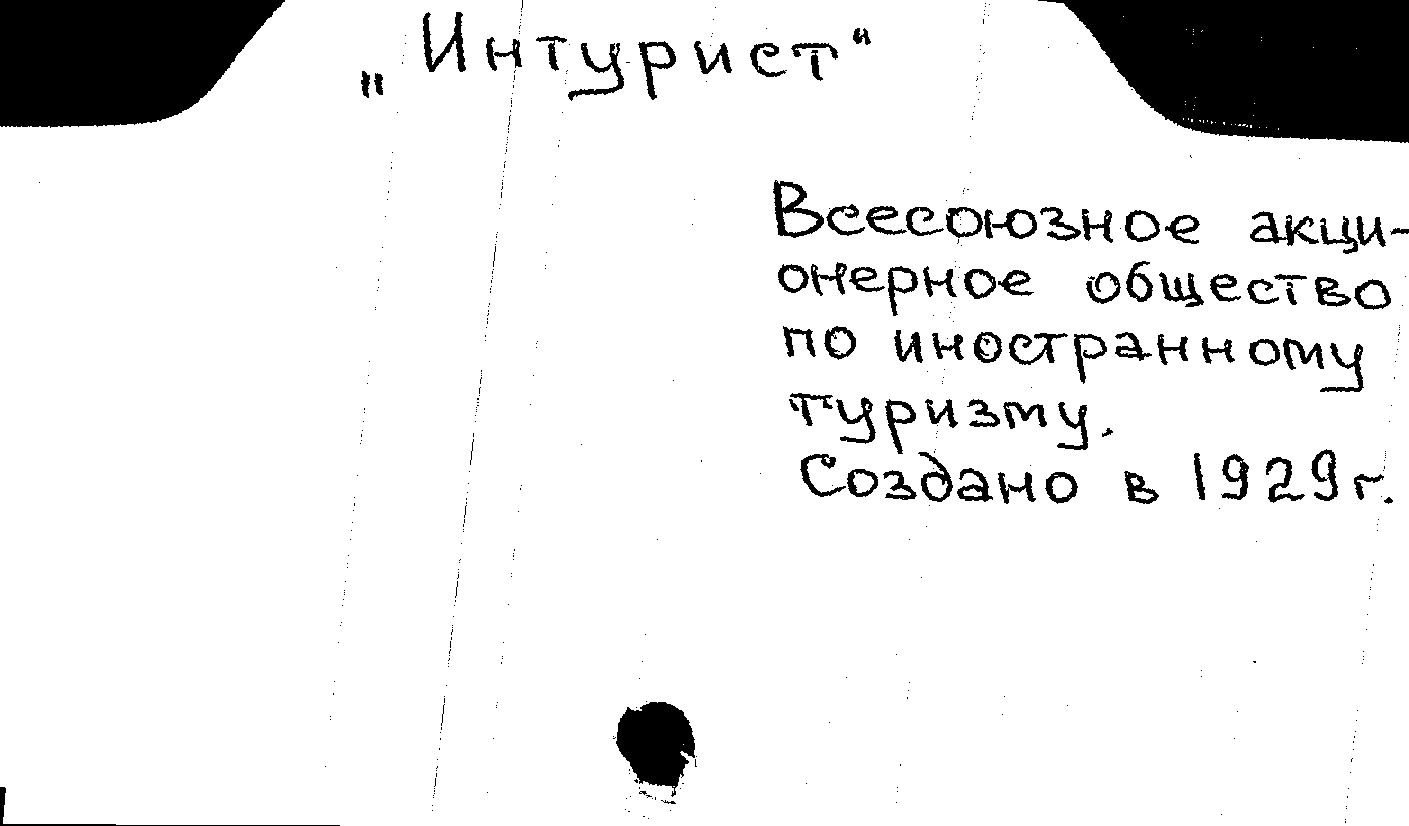 „Интурист“
Всесоюзное акци-
онерное общество
по иностранному
туризму.
Создано в 1929г.